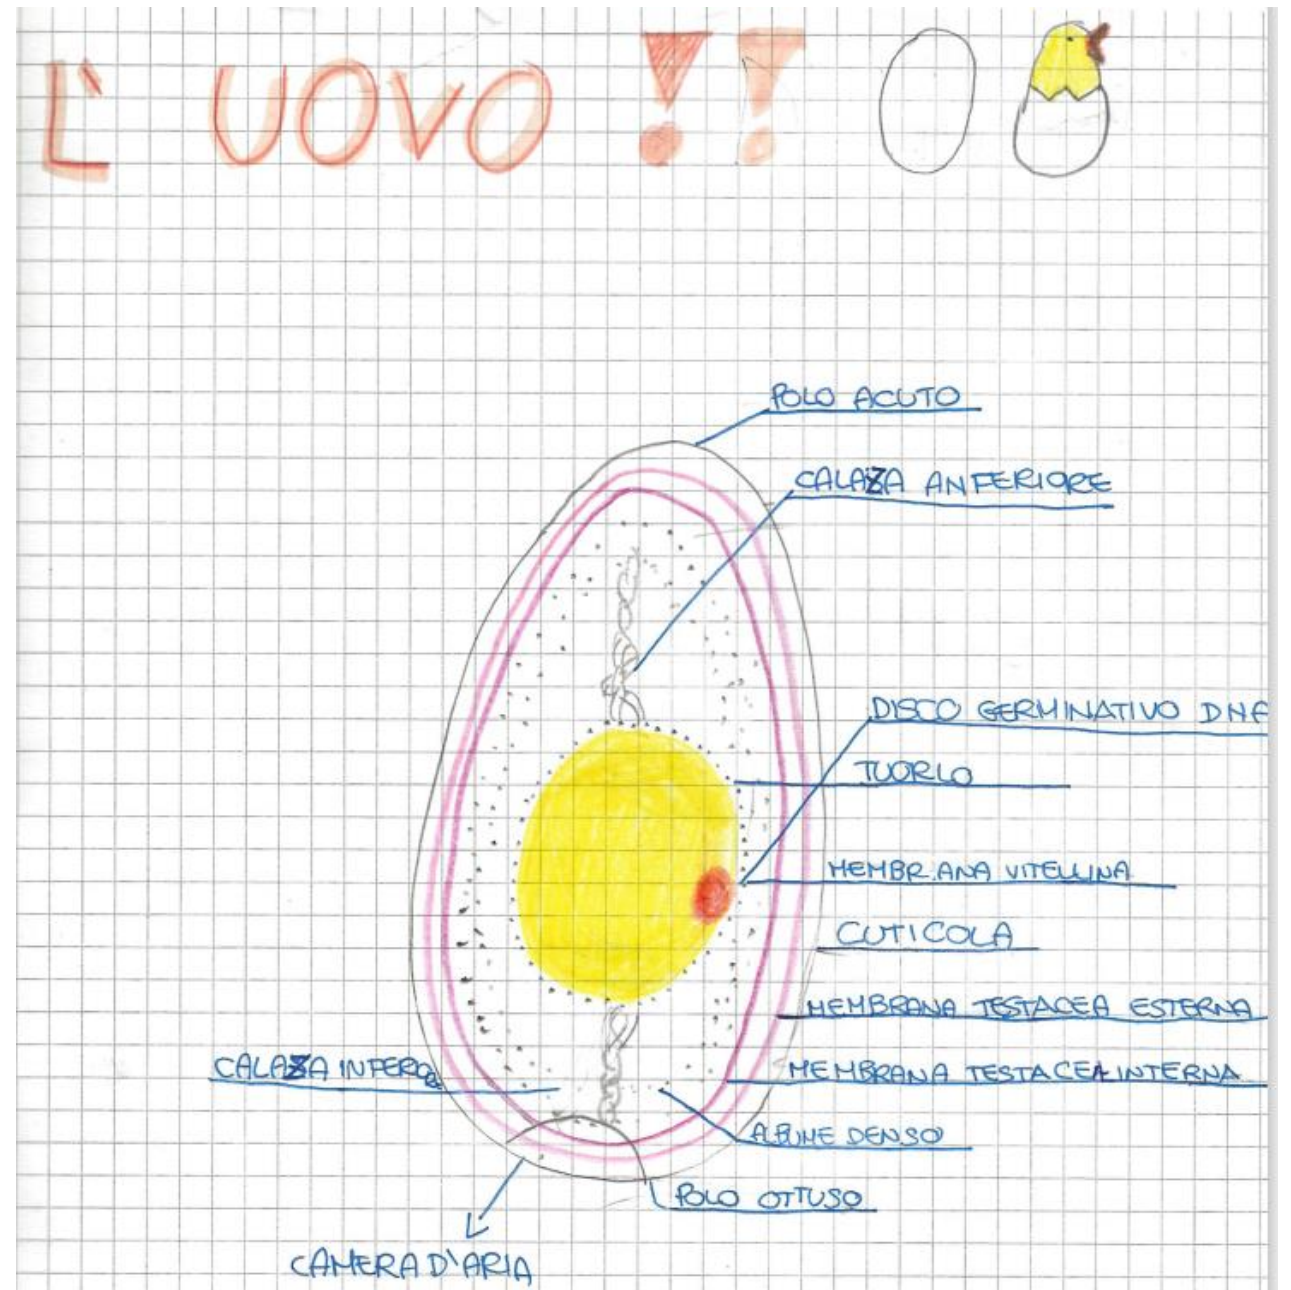 L' UOVO !!
POLO ACUTO
CALAZA ANFERIORE
DISCO GERMINATIVO DNA
TUORLO
MEMBRANA VITELLINA
CUTICOLA
MEMBRANA TESTACEA ESTERNA
CALAZA INFERIORE
MEMBRANA TESTACEA INTERNA
ALBUME DENSO
POLO OTTUSO
CAMERA D'ARIA